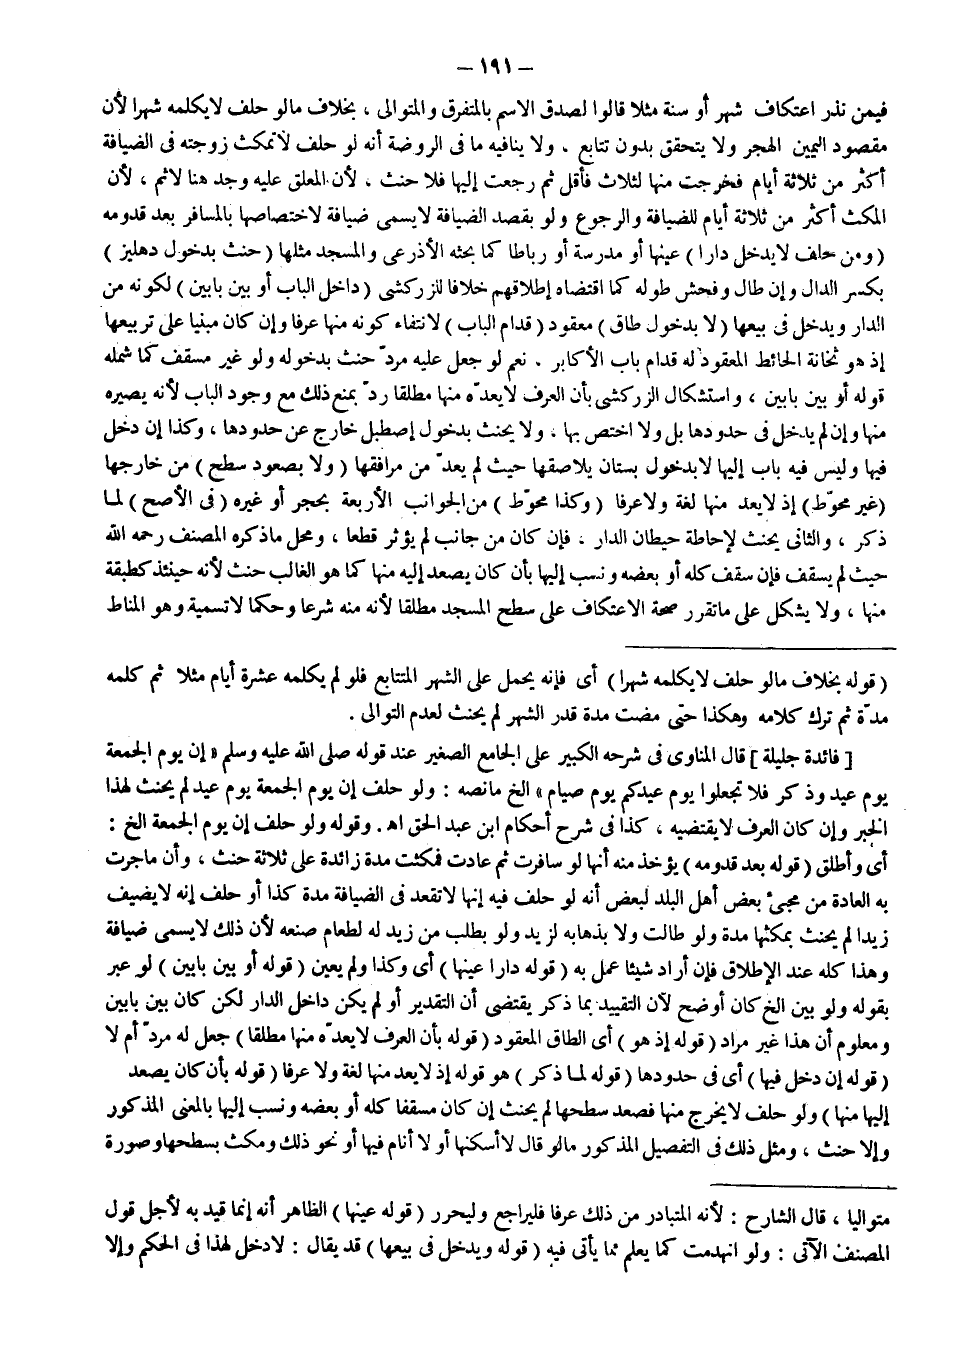 – ١٩١ –
فيمن نذر اعتكاف شهر أو سنة مثلا قالوا لصدق الاسم بالمتفرق والمتوالى ، بخلاف مالو حلف لايكلمه شهرا لأن
مقصود اليمين الهجر ولا يتحقق بدون تتابع . ولا ينافيه ما فى الروضة أنه لو حلف لاتمكث زوجته فى الضيافة
أكثر من ثلاثة أيام فخرجت منها لثلاث فأقل ثم رجعت إليها فلا حنث ، لأن المعلق عليه وجد هنا لاثم ، لأن
المكث أكثر من ثلاثة أيام للضيافة والرجوع ولو بقصد الضيافة لايسمى ضيافة لاختصاصها بالمسافر بعد قدومه
( ومن حلف لايدخل دارا ) عينها أو مدرسة أو رباطا كما بحثه الأذرعى والمسجد مثلها ( حنث بدخول دهليز )
بكسر الدال وإن طال وفحش طوله كما اقتضاه إطلاقهم خلافا للزركشى ( داخل الباب أو بين بابين ) لكونه من
الدار ويدخل فى بيعها ( لا بدخول طاق ) معقود ( قدام الباب ) لانتفاء كونه منها عرفا وإن كان مبنيا على تربيعها
إذ هو ثخانة الحائط المعقود له قدام باب الأكابر . نعم لو جعل عليه مردّ حنث بدخوله ولو غير مسقف كما شمله
قوله أو بين بابين ، واستشكال الزركشى بأن العرف لايعدّه منها مطلقا ردّ بمنع ذلك مع وجود الباب لأنه يصيره
منها وإن لم يدخل فى حدودها بل ولا اختص بها . ولا يحنث بدخول إصطبل خارج عن حدودها ، وكذا إن دخل
فيها وليس فيه باب إليها لابدخول بستان يلاصقها حيث لم يعدّ من مرافقها ( ولا بصعود سطح ) من خارجها
(غير محوّط) إذ لايعد منها لغة ولاعرفا ( وكذا محوّط ) من الجوانب الأربعة بحجر أو غيره ( فى الأصح ) لما
ذكر ، والثانى يحنث لإحاطة حيطان الدار . فإن كان من جانب لم يؤثر قطعا ، ومحل ماذكره المصنف رحمه الله
حيث لم يسقف فإن سقف كله أو بعضه ونسب إليها بأن كان يصعد إليه منها كما هو الغالب حنث لأنه حينئذ كطبقة
منها ، ولا يشكل على ماتقرر صحة الاعتكاف على سطح المسجد مطلقا لأنه منه شرعا وحكما لاتسمية وهو المناط
( قوله بخلاف مالو حلف لايكلمه شهرا ) أى فإنه يحمل على الشهر المتتابع فلو لم يكلمه عشرة أيام مثلا ثم كلمه
مدّة ثم ترك كلامه وهكذا حتى مضت مدة قدر الشهر لم يحنث لعدم التوالى .
[ فائدة جليلة ] قال المناوى فى شرحه الكبير على الجامع الصغير عند قوله صلى الله عليه وسلم « إن يوم الجمعة
يوم عيد وذكر فلا تجعلوا يوم عيدكم يوم صيام » الخ مانصه : ولو حلف إن يوم الجمعة يوم عيد لم يحنث لهذا
الخبر وإن كان العرف لايقتضيه ، كذا فى شرح أحكام ابن عبد الحق اه . وقوله ولو حلف إن يوم الجمعة الخ :
أى وأطلق ( قوله بعد قدومه ) يؤخذ منه أنها لو سافرت ثم عادت فمكثت مدة زائدة على ثلاثة حنث ، وأن ماجرت
به العادة من مجئ بعض أهل البلد لبعض أنه لو حلف فيه إنها لاتقعد فى الضيافة مدة كذا أو حلف إنه لايضيف
زيدا لم يحنث بمكثها مدة ولو طالت ولا بذهابه لزيد ولو بطلب من زيد له لطعام صنعه لأن ذلك لايسمى ضيافة
وهذا كله عند الإطلاق فإن أراد شيئا عمل به ( قوله دارا عينها ) أى وكذا ولم يعين ( قوله أو بين بابين ) لو عبر
بقوله ولو بين الخ كان أوضح لأن التقييد بما ذكر يقتضى أن التقدير أو لم يكن داخل الدار لكن كان بين بابين
ومعلوم أن هذا غير مراد ( قوله إذ هو ) أى الطاق المعقود ( قوله بأن العرف لايعدّه منها مطلقا ) جعل له مردّ أم لا
( قوله إن دخل فيها ) أى فى حدودها ( قوله لما ذكر ) هو قوله إذ لايعد منها لغة ولا عرفا ( قوله بأن كان يصعد
إليها منها ) ولو حلف لايخرج منها فصعد سطحها لم يحنث إن كان مسقفا كله أو بعضه ونسب إليها بالمعنى المذكور
وإلا حنث ، ومثل ذلك فى التفصيل المذكور مالو قال لاأسكنها أو لا أنام فيها أو نحو ذلك ومكث بسطحها وصورة
متواليا ، قال الشارح : لأنه المتبادر من ذلك عرفا فليراجع وليحرر ( قوله عينها ) الظاهر أنه إنما قيد به لأجل قول
المصنف الآتى : ولو انهدمت كما يعلم مما يأتى فيه ( قوله ويدخل فى بيعها ) قد يقال : لادخل لهذا فى الحكم وإلا